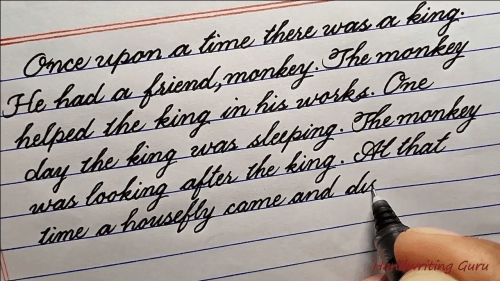 Once upon a time there was a king.
He had a friend, monkey. The monkey
helped the king in his works. One
day the king was sleeping. The monkey
was looking after the king. At that
time a housefly came and dis
Handwriting Guru